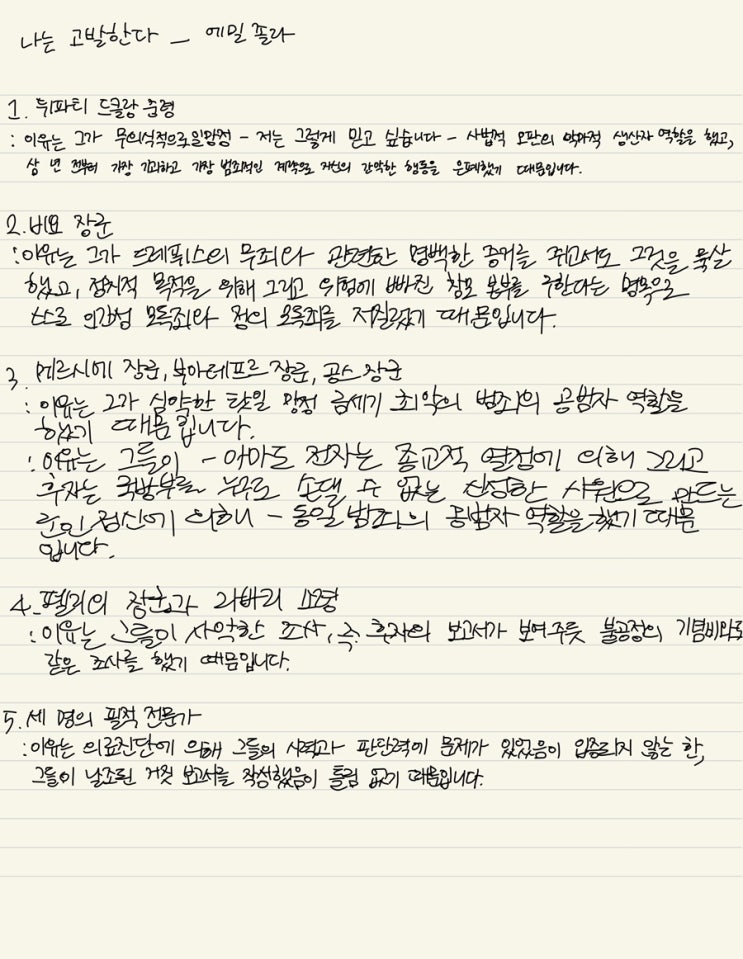 나는 고발한다 - 에밀 졸라
1. 뒤파티 드클랑 중령
: 이유는 그가 무의식적으로일망정 - 저는 그렇게 믿고 싶습니다 - 사법적 오판의 악마적 생산자 역할을 했고,
삼 년 전부터 가장 기괴하고 가장 범죄적인 계략으로 자신의 간악한 행동을 은폐했기 때문입니다.
2. 비요 장군
: 이유는 그가 드레퓌스의 무죄와 관련한 명백한 증거를 쥐고서도 그것을 묵살
했고, 정치적 목적을 위해 그리고 위험에 빠진 참모 본부를 구한다는 명목으로
스스로 인간성 모독죄와 정의 모독죄를 저질렀기 때문입니다.
3. 메르시에 장군, 부아데프르 장군, 공스 장군
: 이유는 그가 심약한 탓일 망정 금세기 최악의 범죄의 공범자 역할을
했기 때문입니다.
: 이유는 그들이 - 아마도 전자는 종교적 열정에 의해 그리고
후자는 국방부를 누구도 손댈 수 없는 신성한 사원으로 만드는
군인 정신에 의해 - 동일 범죄의 공범자 역할을 했기 때문
입니다.
4. 펠리외 장군과 라바리 소령
: 이유는 그들이 사악한 조사, 즉 후자의 보고서가 보여주듯 불공정의 기념비와도
같은 조사를 했기 때문입니다.
5. 세 명의 필적 전문가
: 이유는 의료진단에 의해 그들의 시력과 판단력에 문제가 있었음이 입증되지 않는 한,
그들이 날조된 거짓 보고서를 작성했음이 틀림 없기 때문입니다.